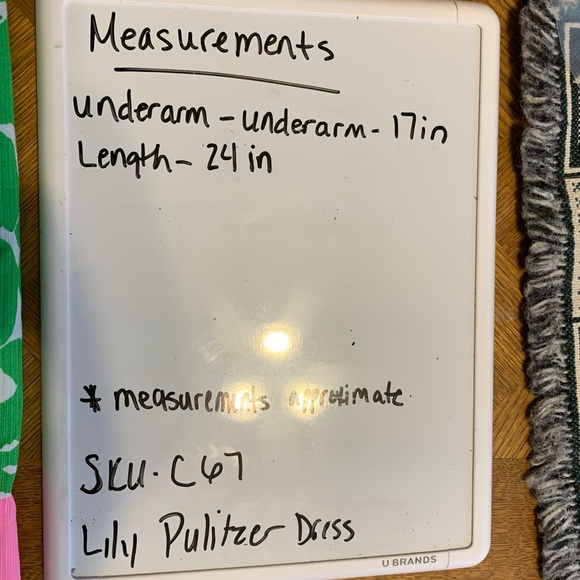 Measurements
underarm - underarm - 17in
Length - 24 in
* measurements approximate.
SKU - C67
Lily Pulitzer Dress
U BRANDS